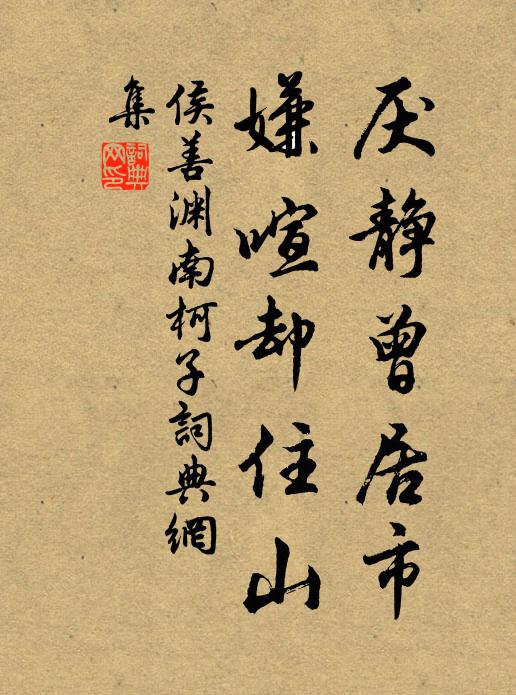 厌静曾居市
嫌喧却住山
侯善渊南柯子詞典網
集
詞典網印